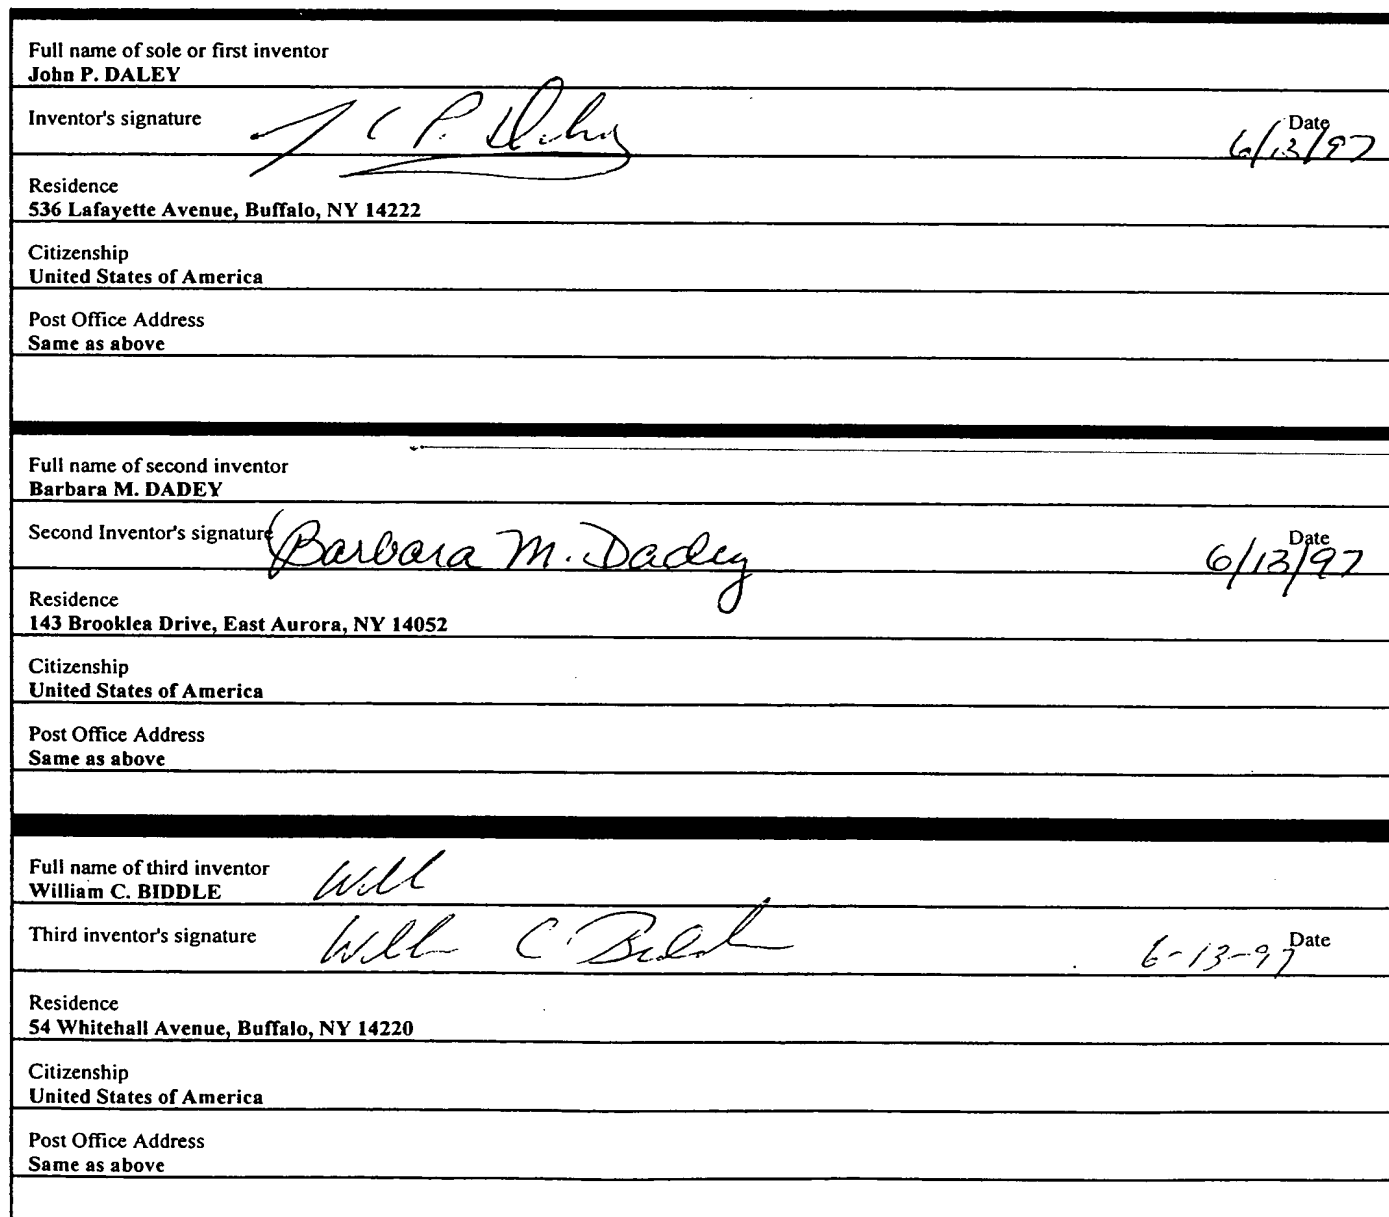 Full name of sole or first inventor
John P. DALEY
Inventor's signature P. Daley Date
6/13/97
Residence
536 Lafayette Avenue, Buffalo, NY 14222
Citizenship
United States of America
Post Office Address
Same as above
Full name of second inventor
Barbara M. DADEY
Second Inventor's signature Barbara M. Dadey Date
6/13/97
Residence
143 Brooklea Drive, East Aurora, NY 14052
Citizenship
United States of America
Post Office Address
Same as above
Full name of third inventor
William C. BIDDLE Will
Third inventor's signature Will C. Biddle 6-13-97 Date
Residence
54 Whitehall Avenue, Buffalo, NY 14220
Citizenship
United States of America
Post Office Address
Same as above